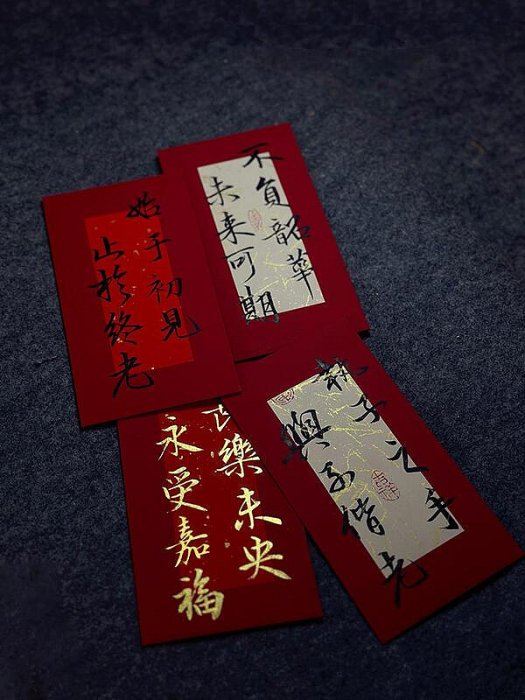 始于初見
止於终老
不負韶華
未来可期
樂未央
永受嘉福
執子之手
與子偕老
吉祥